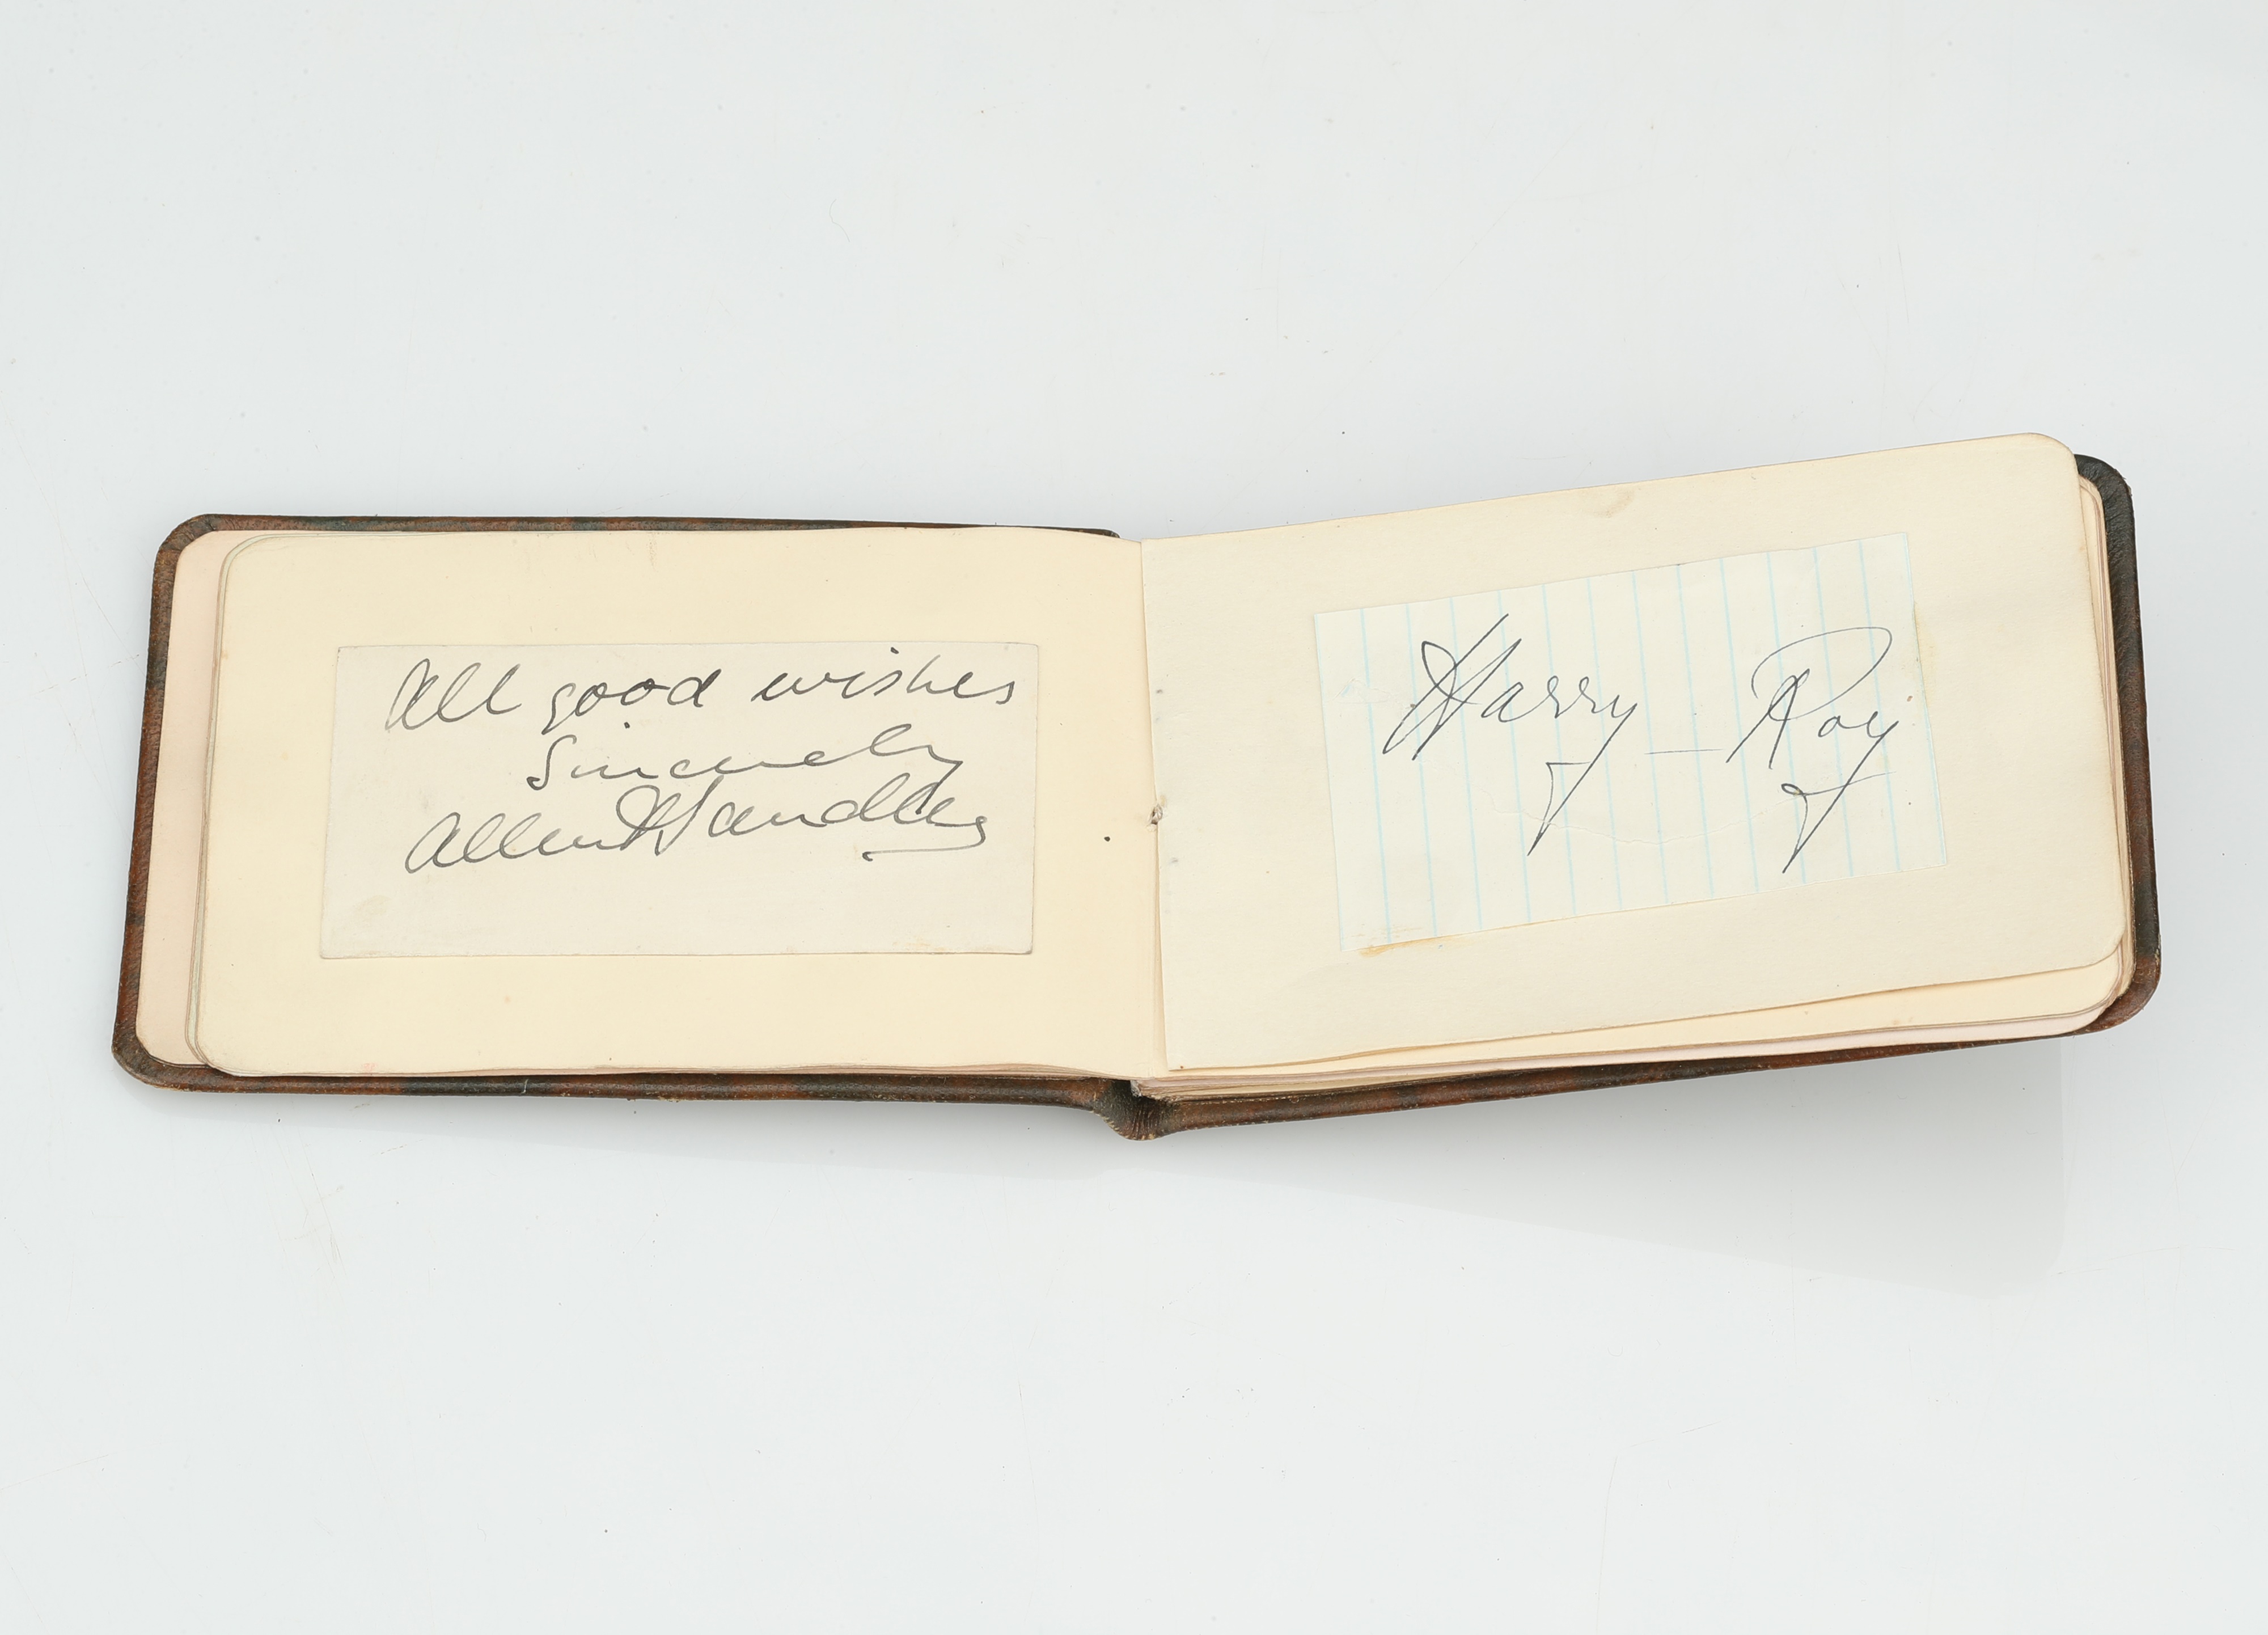 All good wishes
Sincerely
Allen Handley
Harry Roy